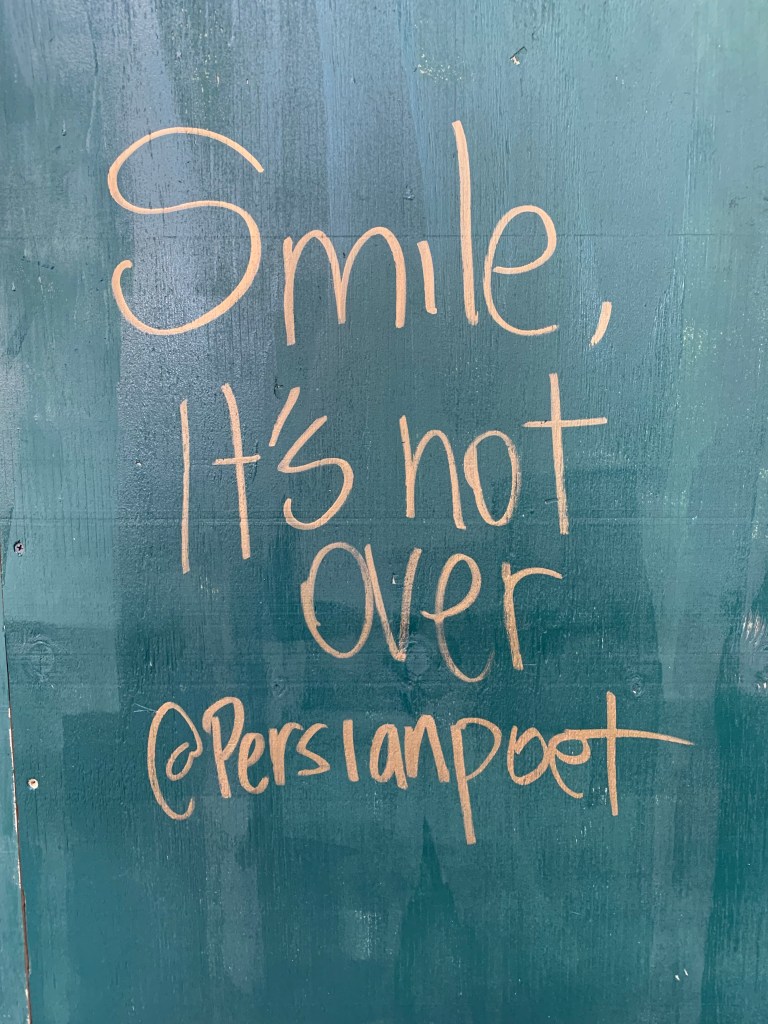 Smile,
It's not
over
@Persianpoet